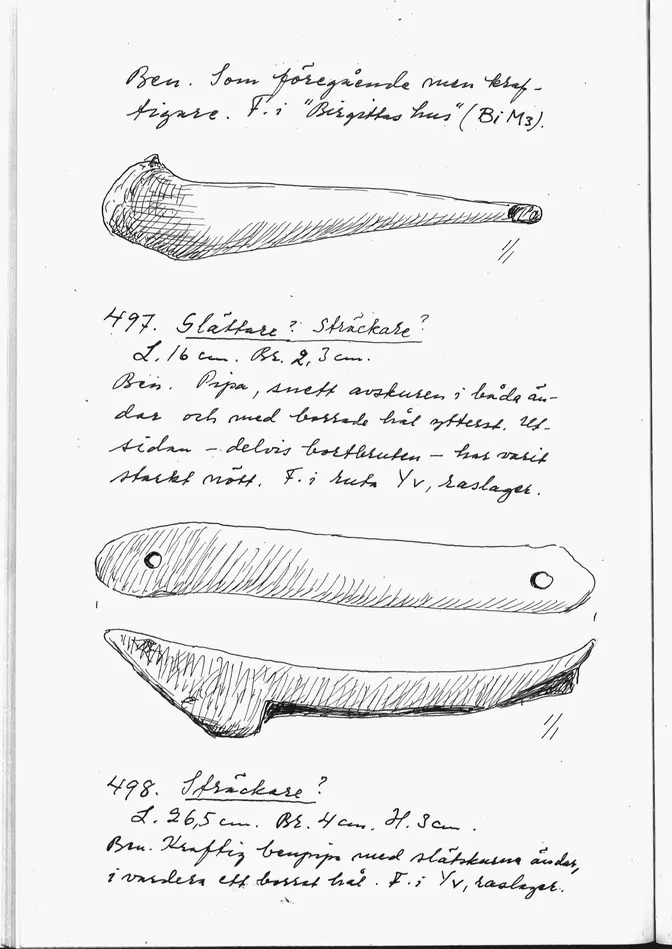 Ben. Som föregående men kraf-
tigare. F. i "Birgittas hus" (BiM3).
1/1
497. Glättare? Sträckare?
L. 16 cm. Br. 2,3 cm.
Ben. Pipa, snett avskuren i båda än-
dar och med borrade hål ytterst. Ut-
sidan – delvis bortbruten – har varit
starkt nött. F. i ruta Yv, raslager.
1/1
498. Sträckare?
L. 26,5 cm. Br. 4 cm. H. 3 cm.
Ben. Kraftig benpipa med slätskurna ändar,
i vardera ett borrat hål. F. i Yv, raslager.